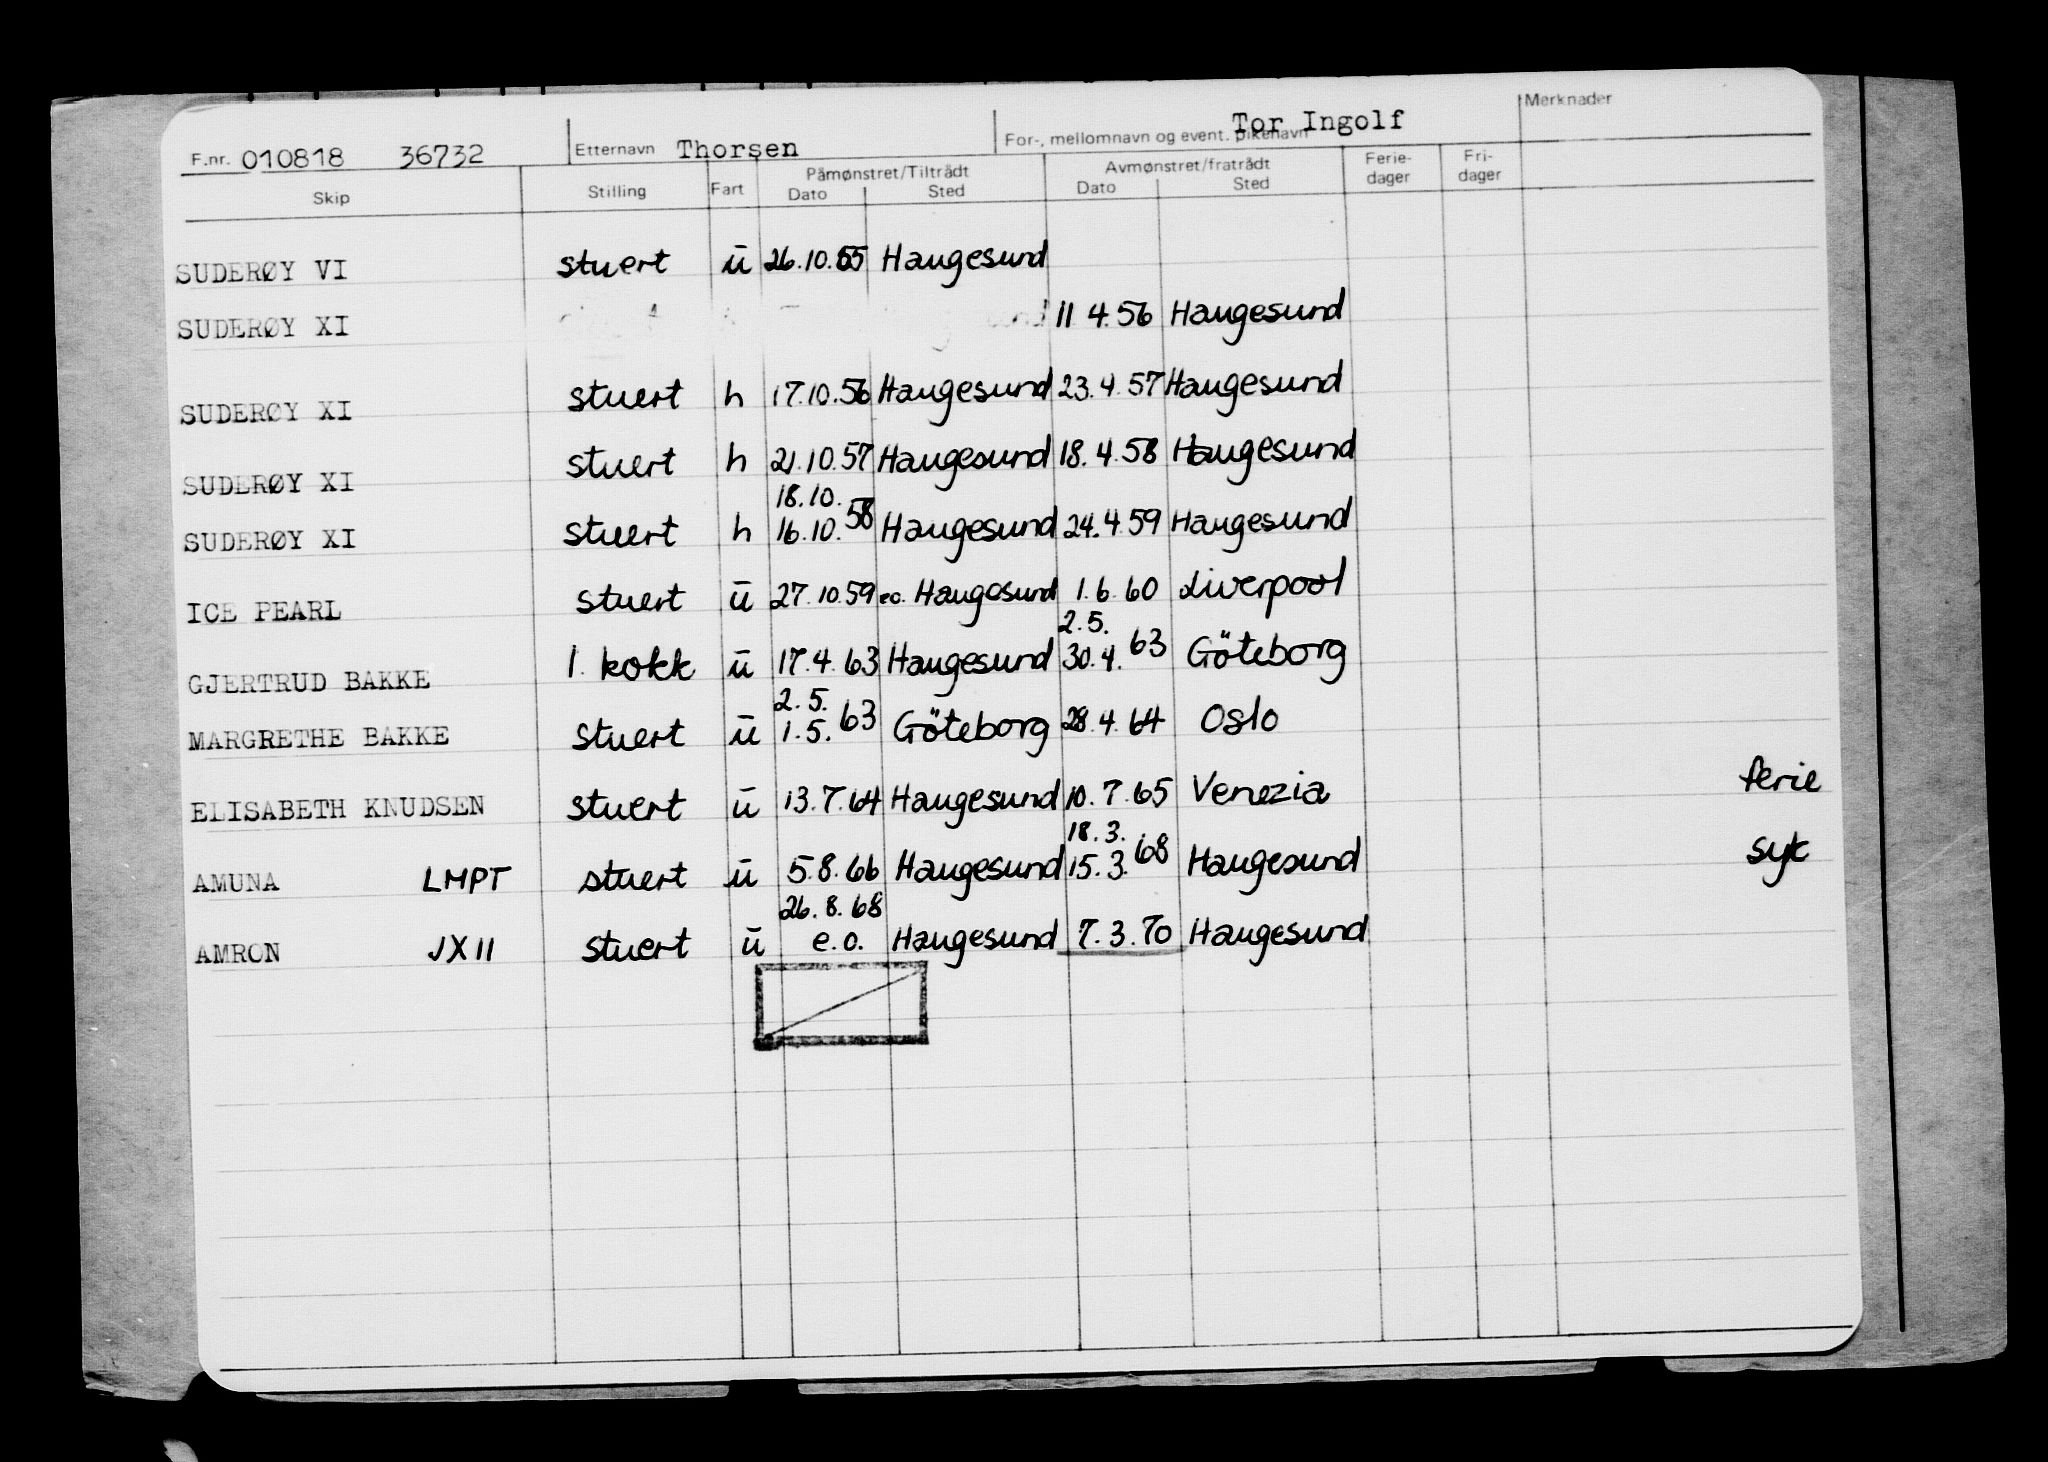 F.nr. 010818 36732 Etternavn Thorsen For-, mellomnavn og event. pikenavn Tor Ingolf Merknader
Skip Stilling Fart Påmønstret/Tiltrådt Avmønstret/fratrådt Ferie-dager Fri-dager
Dato Sted Dato Sted
SUDERØY VI stuert ū 26.10.55 Haugesund
SUDERØY XI 11 4.56 Haugesund
SUDERØY XI stuert h 17.10.56 Haugesund 23.4.57 Haugesund
SUDERØY XI stuert h 21.10.57 Haugesund 18.4.58 Haugesund
18.10.
SUDERØY XI stuert h 16.10.58 Haugesund 24.4.59 Haugesund
ICE PEARL stuert ū 27.10.59 eo. Haugesund 1.6.60 Liverpool
2.5.
GJERTRUD BAKKE 1. kokk ū 17.4.63 Haugesund 30.4.63 Göteborg
2.5.
MARGRETHE BAKKE stuert ū 1.5.63 Göteborg 28.4.64 Oslo
ELISABETH KNUDSEN stuert ū 13.7.64 Haugesund 10.7.65 Venezia ferie
18.3.
AMUNA LMPT stuert ū 5.8.66 Haugesund 15.3.68 Haugesund syk
26.8.68
AMRON JXII stuert ū e.o. Haugesund 7.3.70 Haugesund